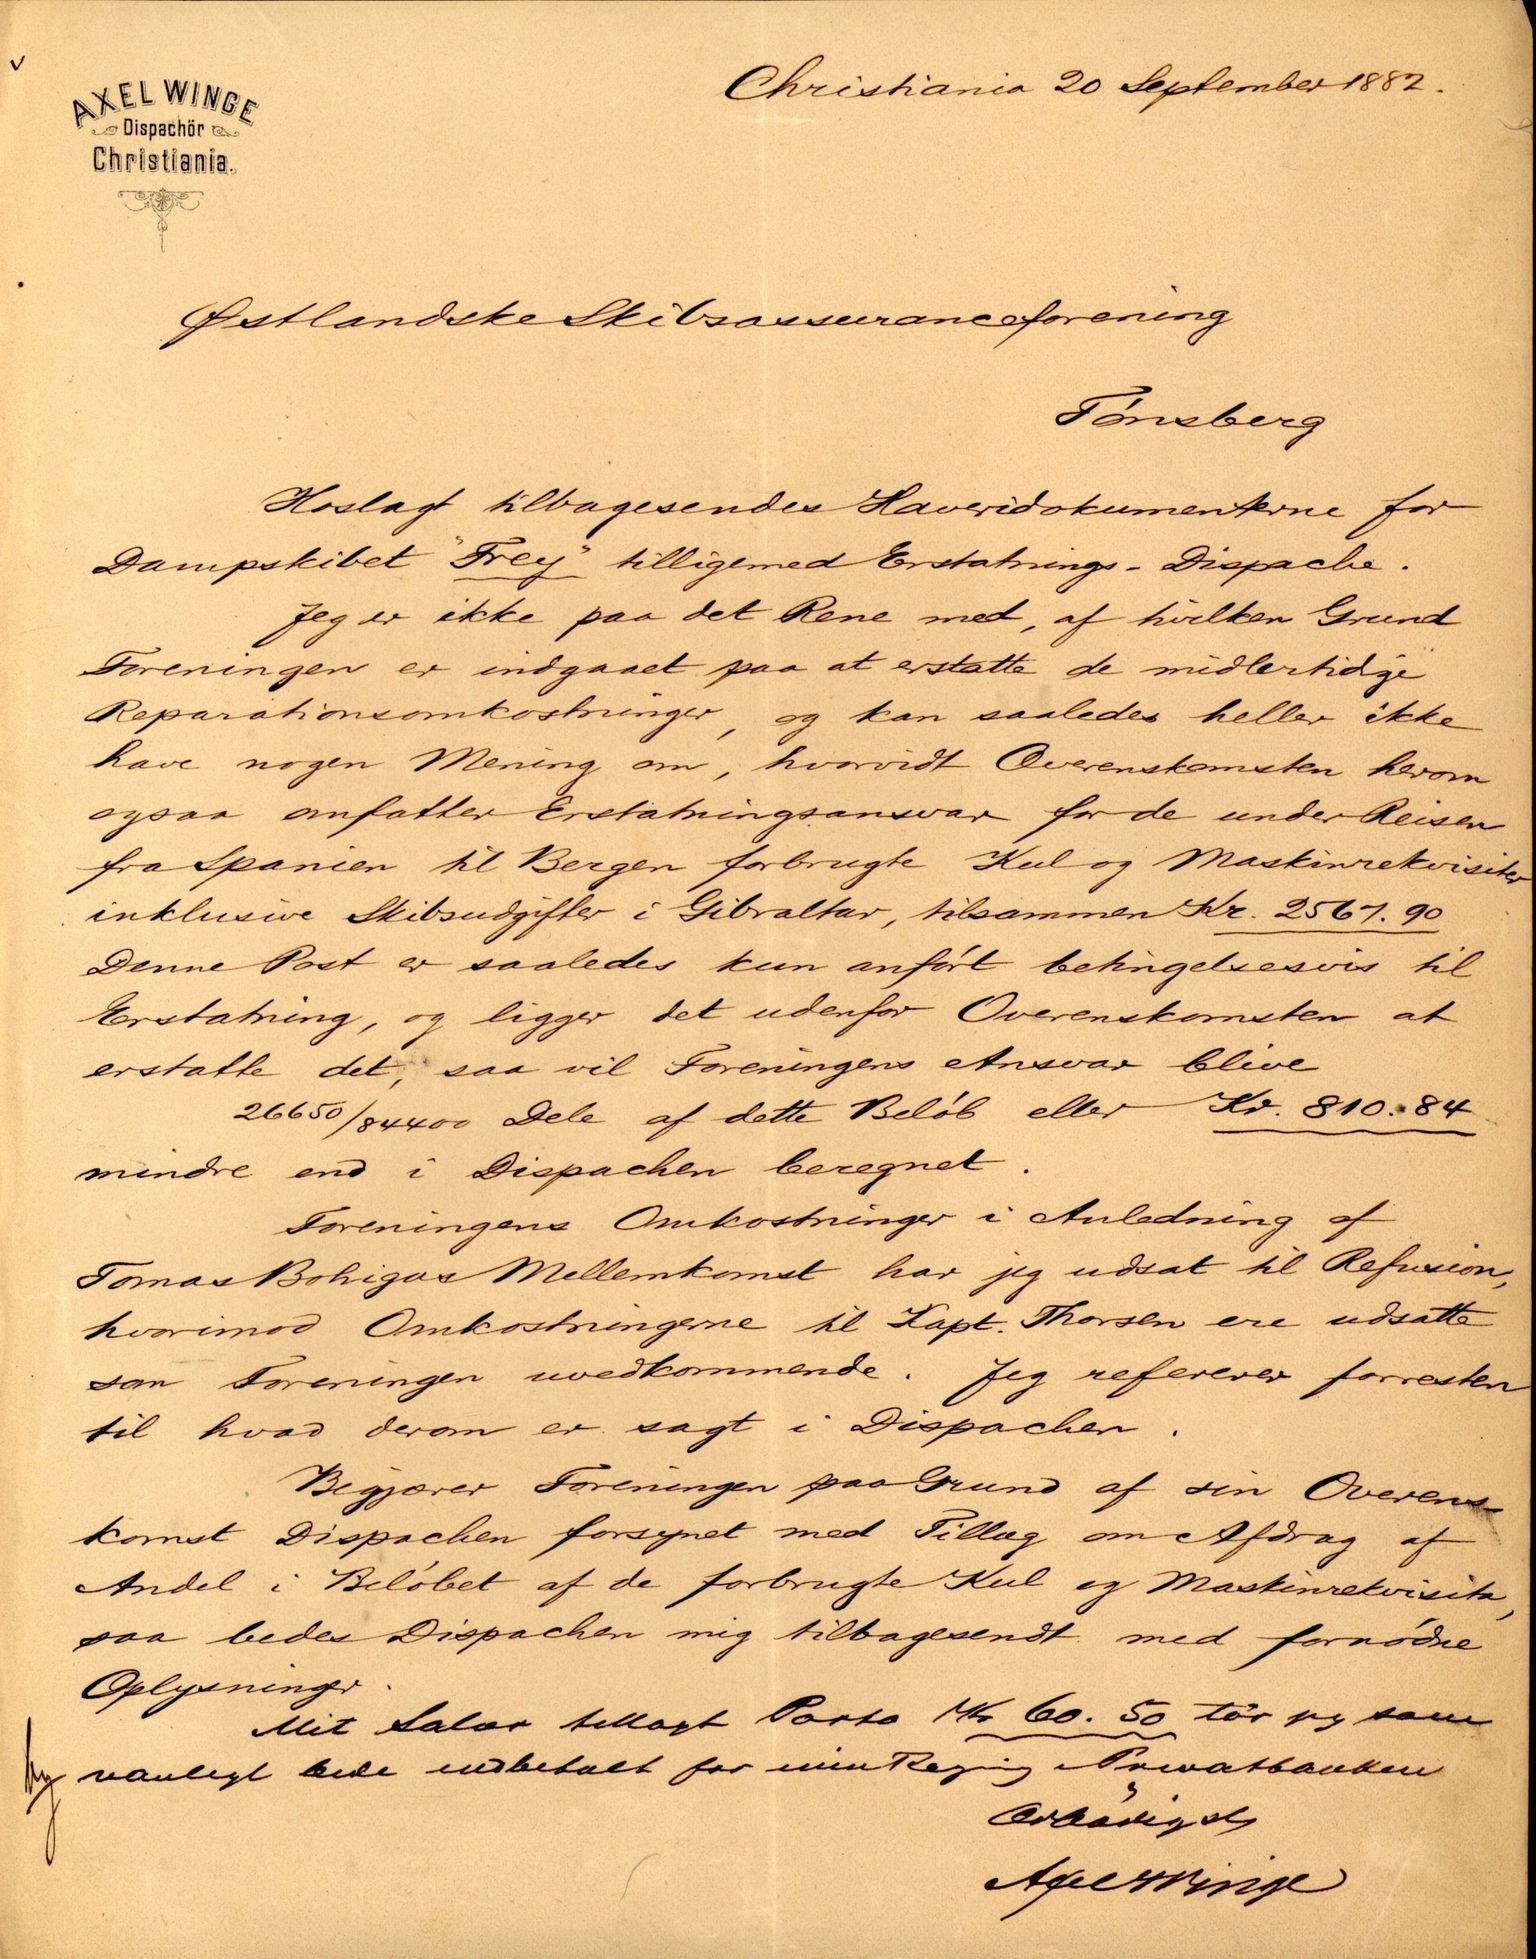 AXEL WINGE
Dispachör
Christiania.
Christiania 20 September 1882.
Østlandske Skibsassuranceforening
Tønsberg
Hoslagt tilbagesendes Haveridokumenterne for
Dampskibet "Frey" tilligemed Erstatnings-Dispache.
Jeg er ikke paa det Rene med, af hvilken Grund
Foreningen er indgaaet paa at erstatte de midlertidige
Reparationsomkostninger, og kan saaledes heller ikke
have nogen Mening om, hvorvidt Overenskomsten herom
ogsaa omfatter Erstatningsansvar for de under Reisen
fra Spanien til Bergen forbrugte Kul og Maskinrekvisiter
inklusive Skibsudgifter i Gibraltar, tilsammen Kr. 2567.90
Denne Post er saaledes kun anført betingelsesvis til
Erstatning, og ligger det udenfor Overenskomsten at
erstatte det, saa vil Foreningens Ansvar blive
26650/84400 Dele af dette Beløb eller Kr. 810.84
mindre end i Dispachen beregnet.
Foreningens Omkostninger i Anledning af
Tomas Bohigas Mellemkomst har jeg udsat til Refusion,
hvorimod Omkostningerne til Kapt. Thorsen ere udsatte
som Foreningen uvedkommende. Jeg refererer forresten
til hvad derom er sagt i Dispachen.
Begjærer Foreningen paa Grund af sin Overens-
komst Dispachen forsynet med Tillæg om Afdrag af
Andel i Beløbet af de forbrugte Kul og Maskinrekvisita,
saa bedes Dispachen mig tilbagesendt med fornødne
Oplysninger.
Mit Salær tillagt Porto Kr 60.50 tør jeg som
vanligt bede indbetalt for min Regning i Privatbanken
Ærbødigst
Axel Winge